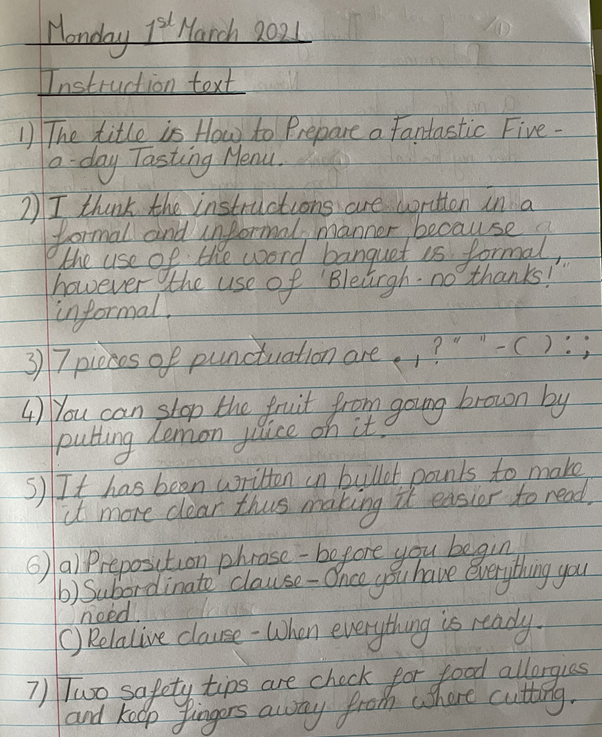 Monday 1st March 2021
Instruction text
1) The title is How to Prepare a Fantastic Five-
a-day Tasting Menu.
2) I think the instructions are written in a
formal and informal manner because
the use of the word banquet is formal,
however the use of "Bleurgh - no thanks!"
informal.
3) 7 pieces of punctuation are . , ? " " - ( ) : ;
4) You can stop the fruit from going brown by
putting lemon juice on it.
5) It has been written in bullet points to make
it more clear thus making it easier to read.
6) a) Preposition phrase - before you begin
b) Subordinate clause - Once you have everything you
need.
C) Relative clause - When everything is ready.
7) Two safety tips are check for food allergies
and keep fingers away from where cutting.